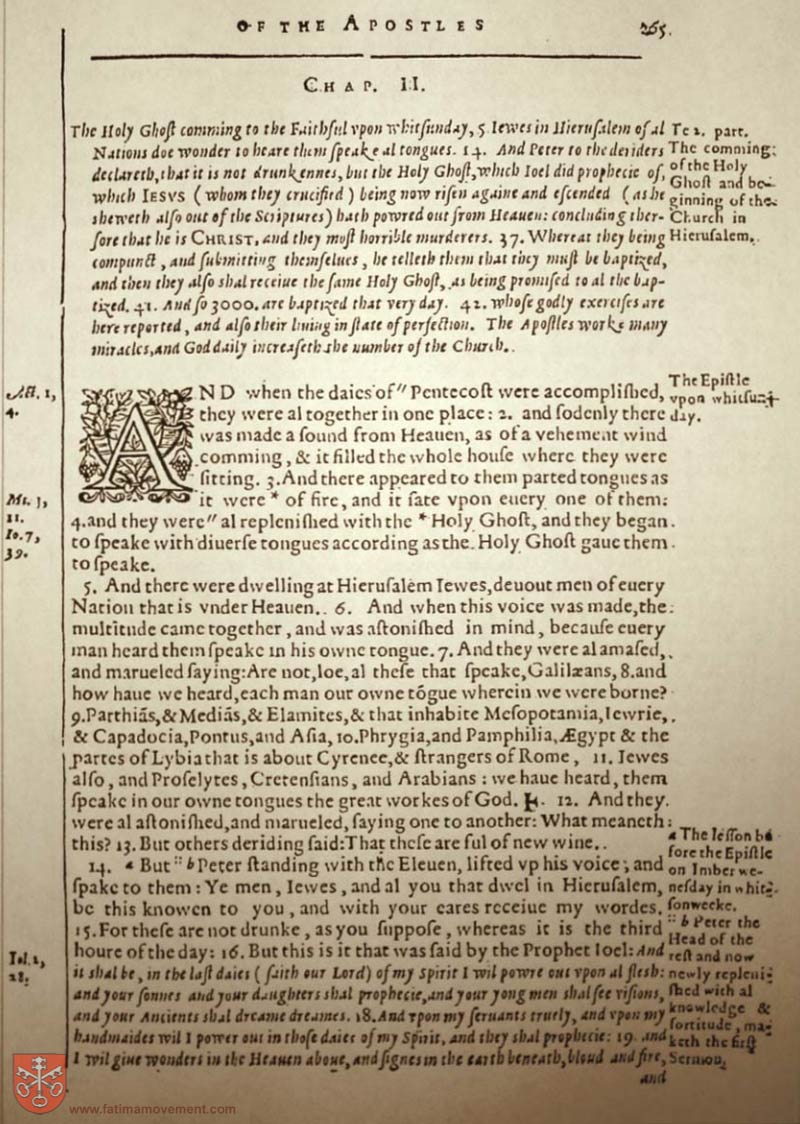 OF THE APOSTLES 265.
CHAP. II.
The Holy Ghoſt comming to the Faithful vpon whitſunday, 5 Iewes in Hieruſalem of al
Nations doe wonder to heare them ſpeake al tongues. 14. And Peter to the deriders
declareth, that it is not drunkennes, but the Holy Ghoſt, which Ioel did prophecie of,
which IESVS (whom they crucified) being now riſen againe and eſcended (as he
ſheweth alſo out of the Scriptures) hath powred out from Heauen: concluding ther-
fore that he is CHRIST, and they moſt horrible murderers. 37. Whereat they being
compunct, and ſubmitting themſelues, he telleth them that they muſt be baptized,
and then they alſo shal receiue the ſame Holy Ghoſt, as being promiſed to al the bap-
tized. 41. And ſo 3000. are baptized that very day. 42. whoſe godly exerciſes are
here reported, and alſo their liuing in ſtate of perfection. The Apoſtles worke many
miracles, and God daily increaſeth the number of the Church.
Te 2. part.
The comming
of the Holy
Ghoſt and be-
ginning of the
Church in
Hieruſalem.
Act. 1,
4.
AND when the daies of" Pentecoſt were accompliſhed,
they were al together in one place: 2. and ſodenly there
was made a ſound from Heauen, as of a vehement wind
comming, & it filled the whole houſe where they were
ſitting. 3. And there appeared to them parted tongues as
it were * of fire, and it ſate vpon euery one of them:
4. and they were" al repleniſhed with the * Holy Ghoſt, and they began
to ſpeake with diuerſe tongues according as the Holy Ghoſt gaue them
to ſpeake.
The Epiſtle
vpon whitſun-
day.
Mt. 3,
11.
Io. 7,
39.
5. And there were dwelling at Hieruſalẽm Iewes, deuout men of euery
Nation that is vnder Heauen. 6. And when this voice was made, the
multitude came together, and was aſtoniſhed in mind, becauſe euery
man heard them ſpeake in his owne tongue. 7. And they were al amaſed,
and marueled ſaying: Are not, loe, al theſe that ſpeake, Galilæans, 8. and
how haue we heard, each man our owne tõgue wherein we were borne?
9. Parthiãs, & Mediãs, & Elamites, & that inhabite Meſopotamia, Iewrie,
& Capadocia, Pontus, and Aſia, 10. Phrygia, and Pamphilia, Ægypt & the
partes of Lybia that is about Cyrenee, & ſtrangers of Rome, 11. Iewes
alſo, and Proſelytes, Cretenſians, and Arabians: we haue heard, them
ſpeake in our owne tongues the great workes of God. 12. And they
were al aſtoniſhed, and marueled, ſaying one to another: What meaneth
this? 13. But others deriding ſaid: That theſe are ful of new wine.
14. But :: b Peter ſtanding with the Eleuen, lifted vp his voice, and
ſpake to them: Ye men, Iewes, and al you that dwel in Hieruſalem,
be this knowen to you, and with your eares receiue my wordes.
15. For theſe are not drunke, as you ſuppoſe, whereas it is the third
houre of the day: 16. But this is it that was ſaid by the Prophet Ioel: And
it shal be, in the laſt daies (ſaith our Lord) of my Spirit I wil powre out vpon al flesh:
and your ſonnes and your daughters shal prophecie, and your yong men shal ſee viſions,
and your Ancients shal dreame dreames. 18. And vpon my ſeruants truely, and vpon my
handmaides wil I power out in thoſe daies of my Spirit, and they shal prophecie: 19. and
I wil giue wonders in the Heauen aboue, and ſignes in the earth beneath, bloud and fire,
and
a The leſſon be
fore the Epiſtle
on Imber we-
neſday in whit-
ſonweeke.
:: b Peter the
Head of the
reſt and now
newly repleni-
ſhed with al
knowledge &
fortitude, ma-
keth the firſt
Sermon,
28.
www.fatimamovement.com